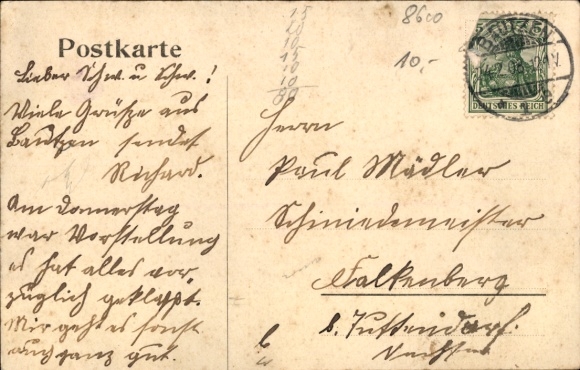 Postkarte
Lieber Schw. u Schw.!
Viele Grüße aus
Bautzen sendet
Richard.
Am Donnerstag
war Vorstellung
es hat alles vor
züglich geklappt.
Mir geht es sonst
auch ganz gut.
15
20
10
15
10
10
80
8600
10,-
BAUTZEN
DEUTSCHES REICH
Herrn
Paul Mädler
Schmiedemeister
Falkenberg
b.